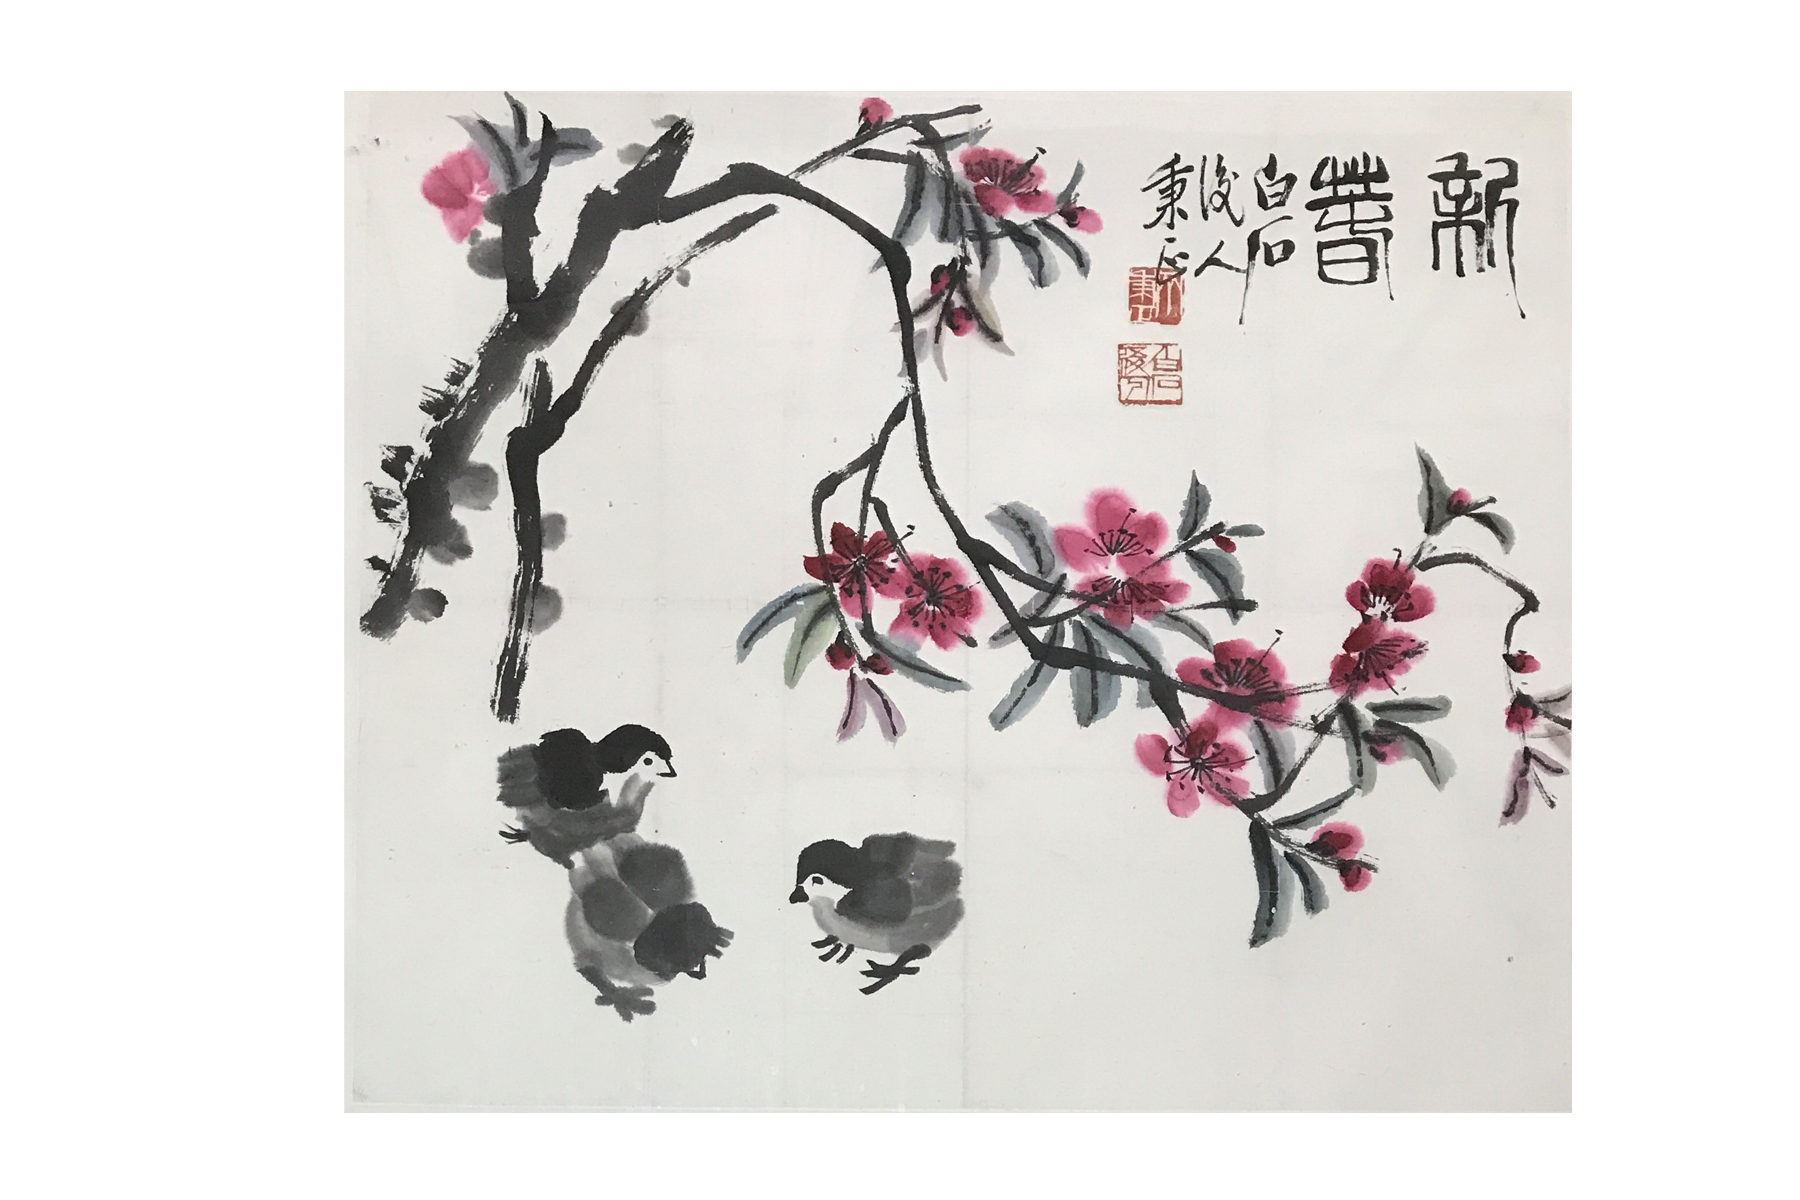 新春
白石
後人
秉正
白石
後人